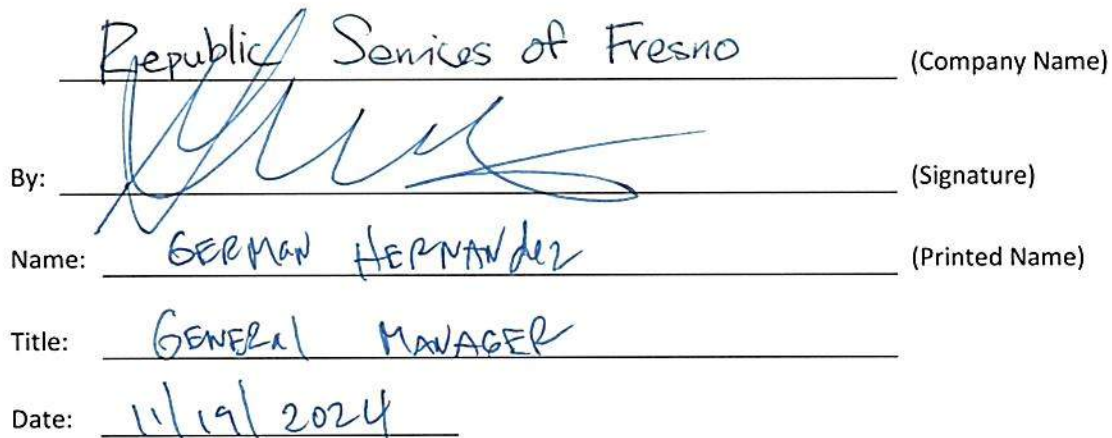 Republic Services of Fresno (Company Name)
By: (Signature)
Name: GERMAN HERNANdez (Printed Name)
Title: GENERAl MANAGER
Date: 11/19/2024